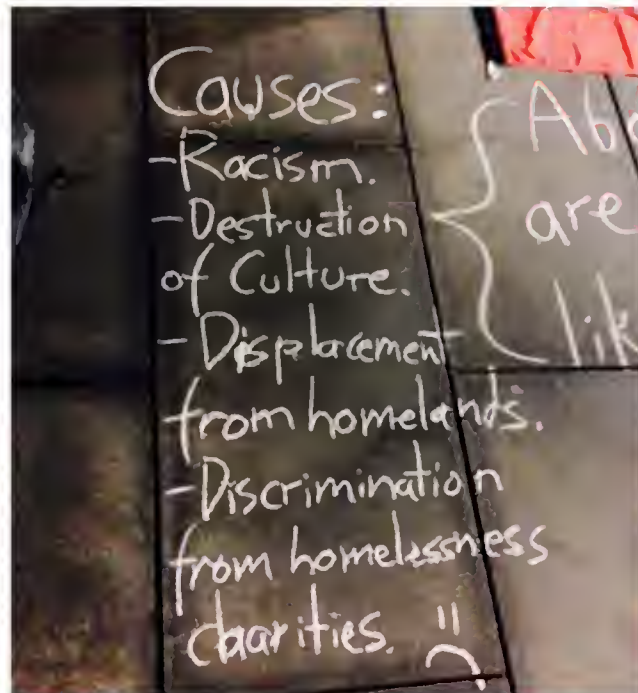 Causes:
-Racism.
-Destruction
of Culture.
-Displacement
from homelands.
-Discrimination
from homelessness
charities.
are